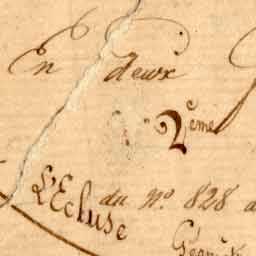 En deux
2ème
L'Ecluse du N°. 828